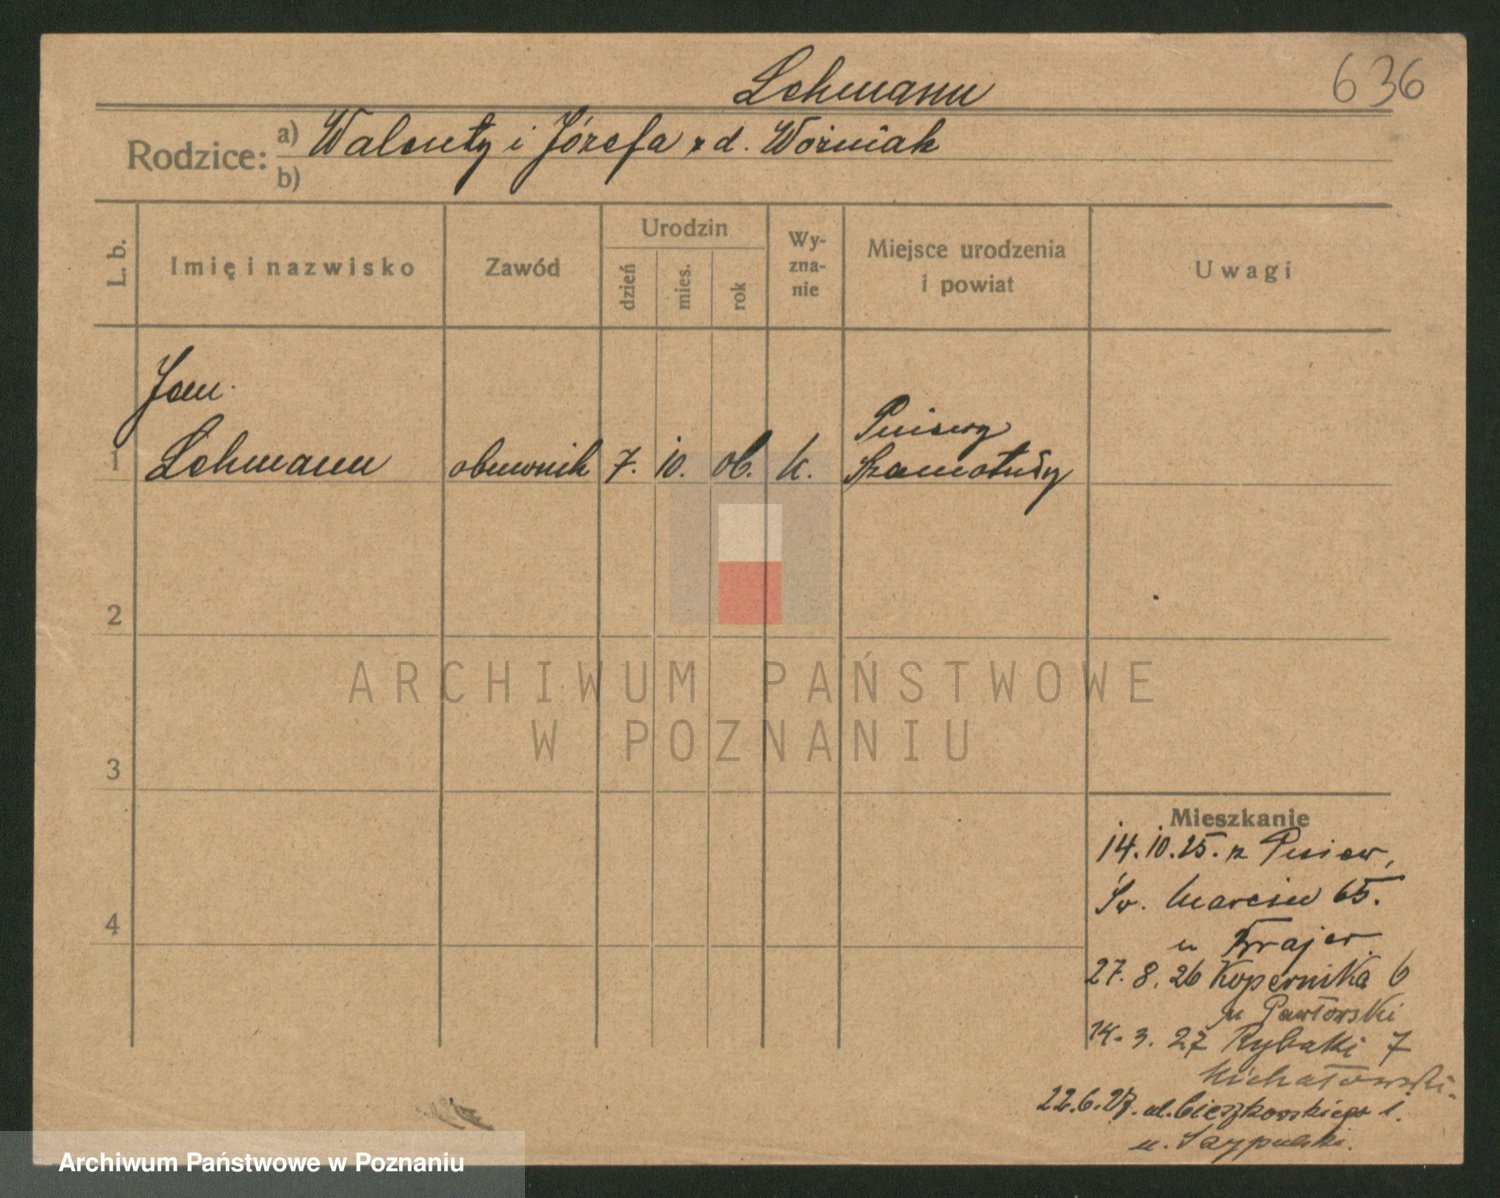 Lehmann
636
Rodzice: a) Walenty i Józefa z d. Woźniak
b)
L. b.
Imię i nazwisko
Zawód
Urodzin
dzień
mies.
rok
Wy-
zna-
nie
Miejsce urodzenia
i powiat
Uwagi
Jan
1 Lehmann obuwnik 7. 10. 06. k. Pniewy
Szamotuły
2
3
4
Mieszkanie
14.10.25. z Pniew,
Św. Marcin 65.
u Krajer.
27.8.26 Kopernika 6
u Pawłowski
14.3.27 Rybaki 7
Michałowski.
22.6.27. ul. Cieszkowskiego 1.
u.
ARCHIWUM PAŃSTWOWE
W POZNANIU
Archiwum Państwowe w Poznaniu